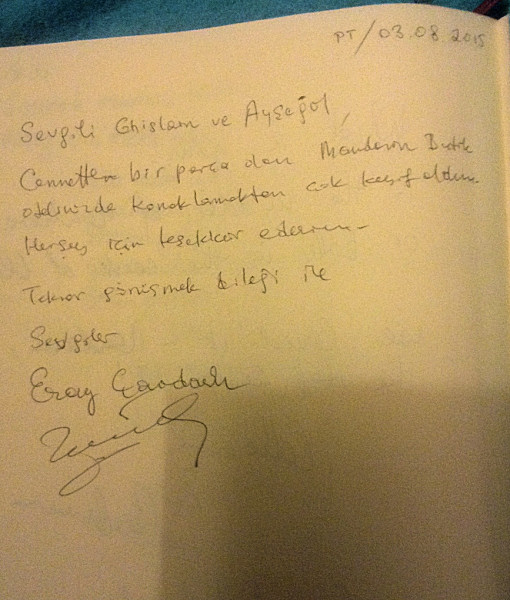 PT/03.08.2015
Sevgili Ghislain ve Ayşegül,
Cennetten bir parça olan Mandarin Butik
otelinizde konaklamaktan çok keyif aldım.
Herşey için teşekkür ederim.
Tekrar görüşmek dileği ile
Sevgiler
Eray